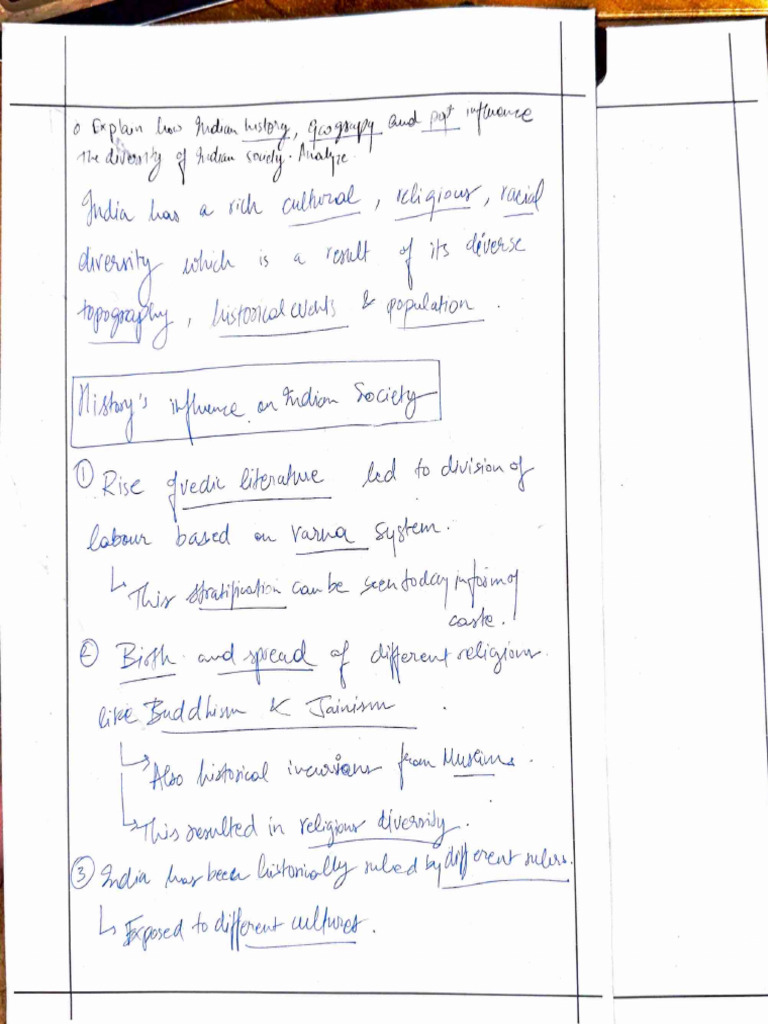 Explain how Indian history, Geograpy and popt influence
the diversity of Indian society. Analyze
India has a rich cultural, religious, racial
diversity which is a result of its diverse
topography, historical events & population.
History's influence on Indian Society
① Rise of vedic literature led to division of
labour based on varna system.
↳ This stratification can be seen today in form of
caste.
② Birth and spread of different religions
like Buddhism & Jainism.
↳ Also historical incursions from Muslims.
↳ This resulted in religious diversity.
③ India has been historically ruled by different rulers.
↳ Exposed to different cultures.